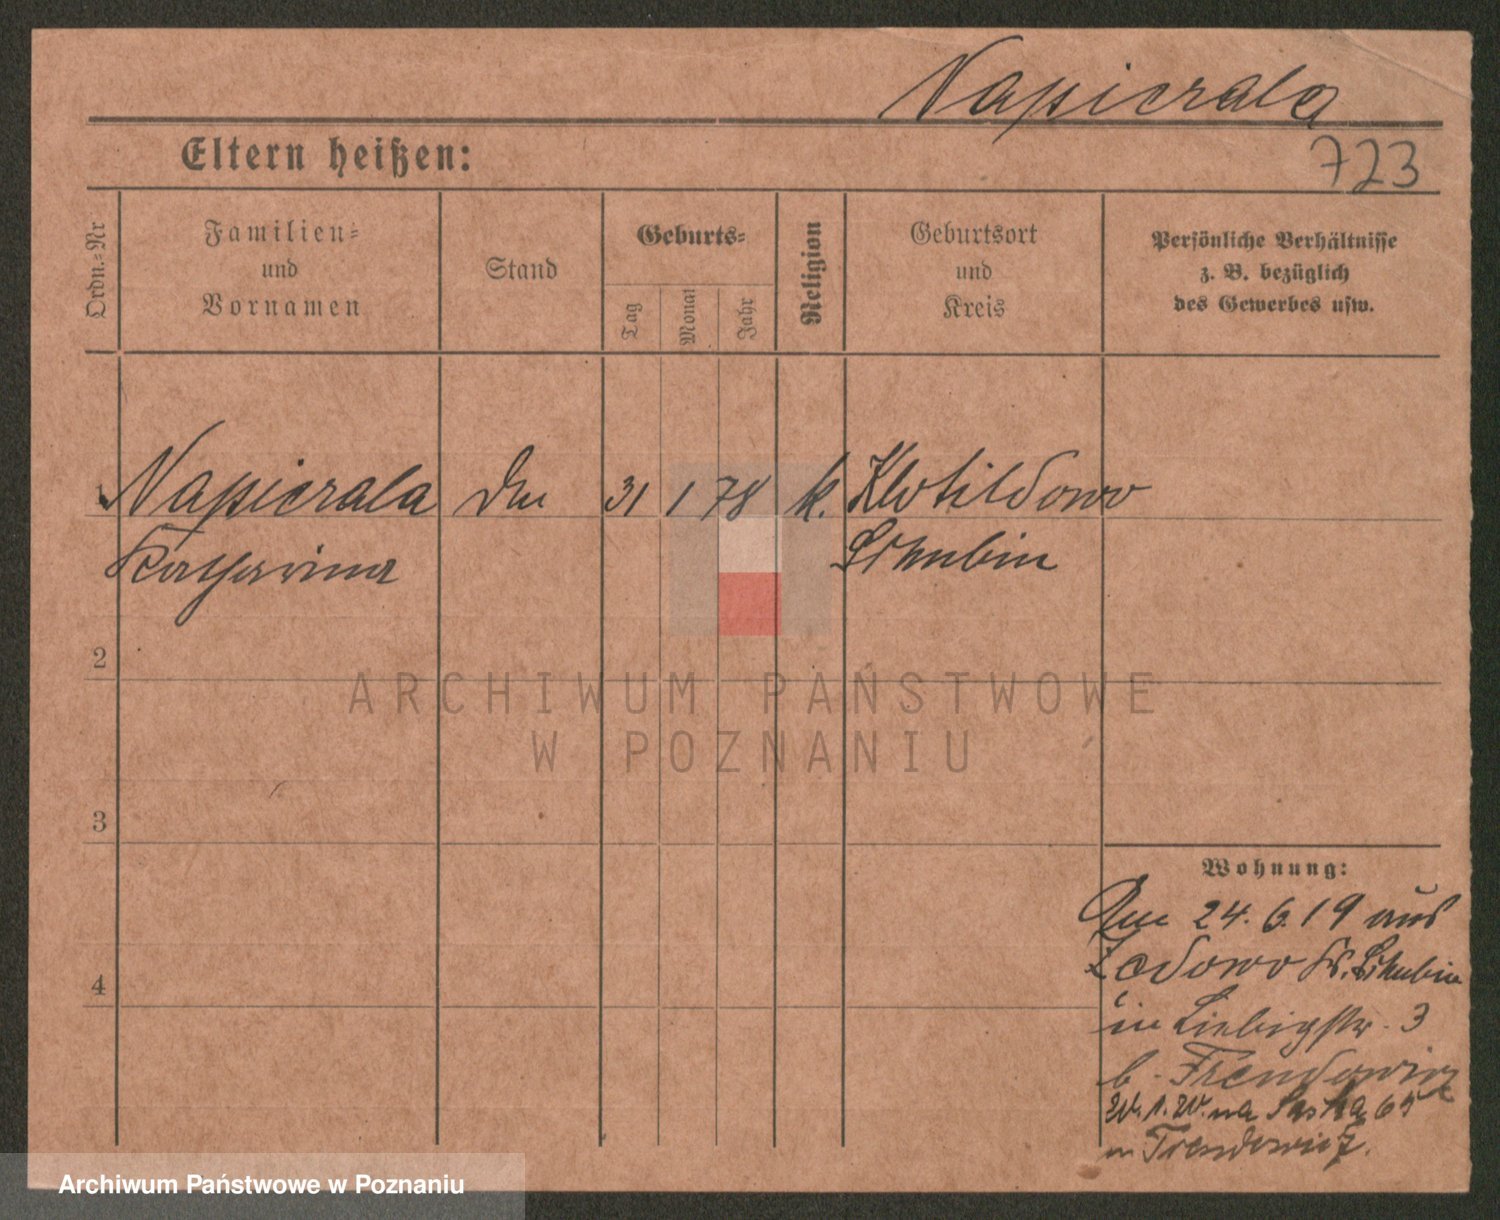 Napierala
Eltern heißen:
723
Ordn.=Nr
Familien=
und
Vornamen
Stand
Geburts=
Tag
Monat
Jahr
Religion
Geburtsort
und
Kreis
Persönliche Verhältnisse
z. B. bezüglich
des Gewerbes usw.
1 Napierala 31 1 78 k. Klotildowo
Katharina Schubin
2
3
4
Wohnung:
Am 24.6.19 aus
Kr. Schubin
in Liebigstr. 3
b.
65
ARCHIWUM PAŃSTWOWE
W POZNANIU
Archiwum Państwowe w Poznaniu